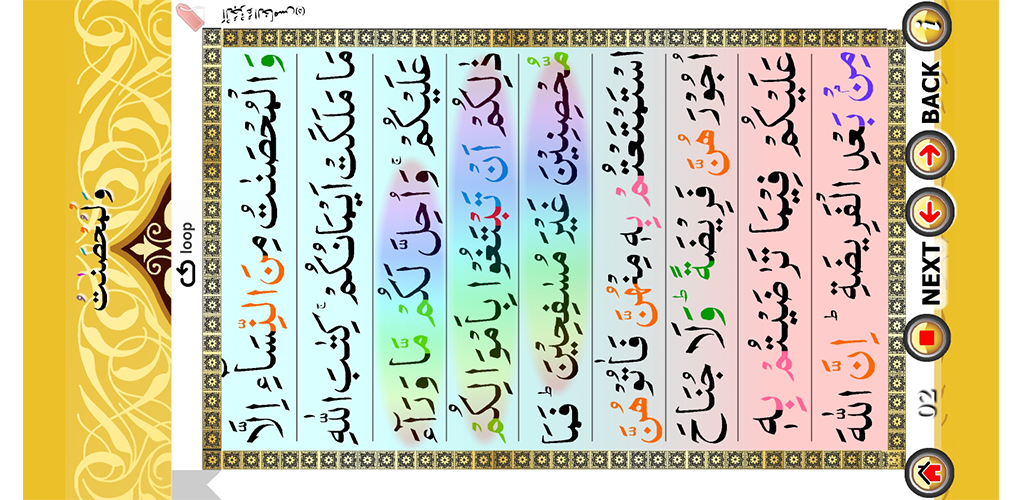 وَالْمُحْصَنٰتُ
loop
اَلْجُزْءُ الْخَامِسُ (٥)
وَالْمُحْصَنٰتُ مِنَ النِّسَآءِ اِلَّا
مَا مَلَكَتْ اَيْمَانُكُمْ ۚ كِتٰبَ اللّٰهِ
عَلَيْكُمْ ۚ وَاُحِلَّ لَكُمْ مَّا وَرَآءَ
ذٰلِكُمْ اَنْ تَبْتَغُوْا بِاَمْوَالِكُمْ
مُّحْصِنِيْنَ غَيْرَ مُسٰفِحِيْنَ ؕ فَمَا
اسْتَمْتَعْتُمْ بِهٖ مِنْهُنَّ فَاٰتُوْهُنَّ
اُجُوْرَهُنَّ فَرِيْضَةً ؕ وَلَا جُنَاحَ
عَلَيْكُمْ فِيْمَا تَرٰضَيْتُمْ بِهٖ
مِنْۢ بَعْدِ الْفَرِيْضَةِ ؕ اِنَّ اللّٰهَ
02
NEXT
BACK
i